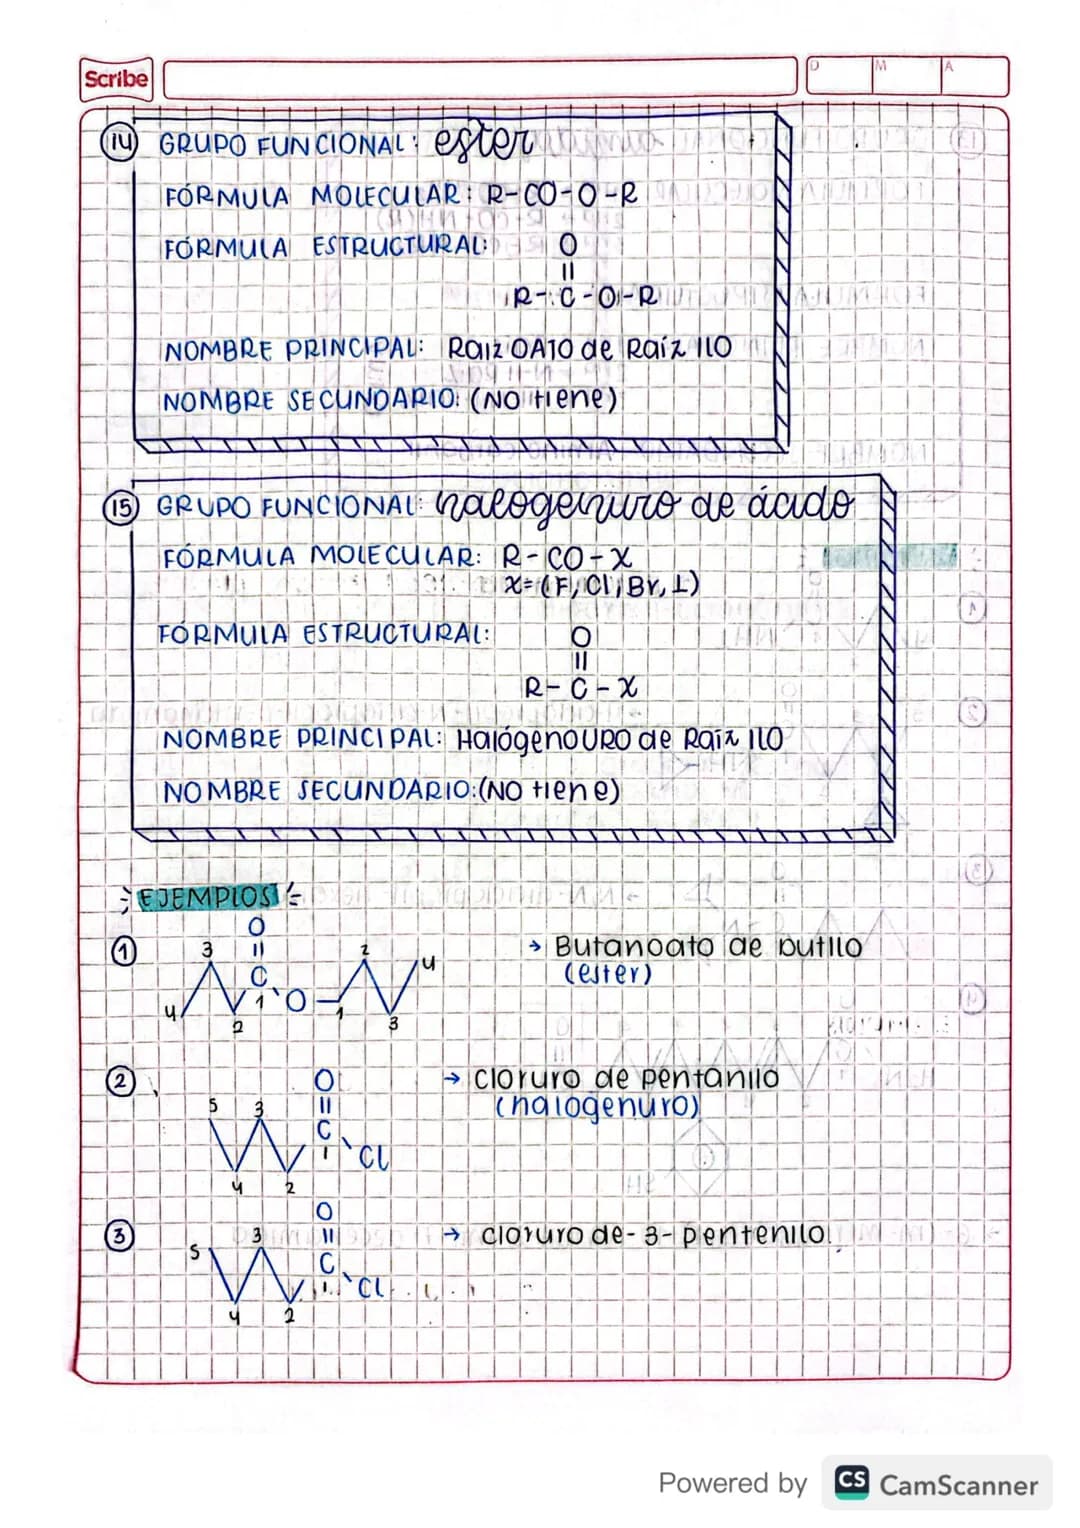 Scribe
D M A
14 GRUPO FUNCIONAL: ester
FÓRMULA MOLECULAR: R-CO-O-R
FÓRMULA ESTRUCTURAL:
O
||
R-C-O-R
NOMBRE PRINCIPAL: RaízOATO de Raíz ILO
NOMBRE SECUNDARIO: (NO tiene)
15 GRUPO FUNCIONAL: halogenuro de ácido
FÓRMULA MOLECULAR: R-CO-X
X=(F, Cl, Br, I)
FÓRMULA ESTRUCTURAL:
O
||
R-C-X
NOMBRE PRINCIPAL: HalógenoURO de Raíz ILO
NOMBRE SECUNDARIO: (NO tiene)
EJEMPLOS
1 → Butanoato de butilo
(ester)
O
3 || 2 4
C
4 2 1 O 1 3
2 → cloruro de pentanilo
(halogenuro)
O
5 3 ||
C
1 Cl
4 2
3 → cloruro de-3-pentenilo
O
5 3 ||
C
1 Cl
4 2
Powered by CS CamScanner